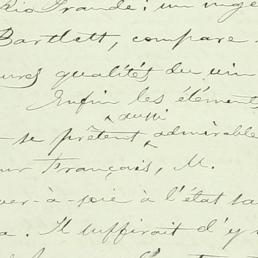 Rio Grande; un inge
Bartlett, compare
ures qualités du vin
Enfin les élément
aussi
se prêtent admirable
ur François, M.
ver-à-soie à l'état sa
a. Il suffirait d'y